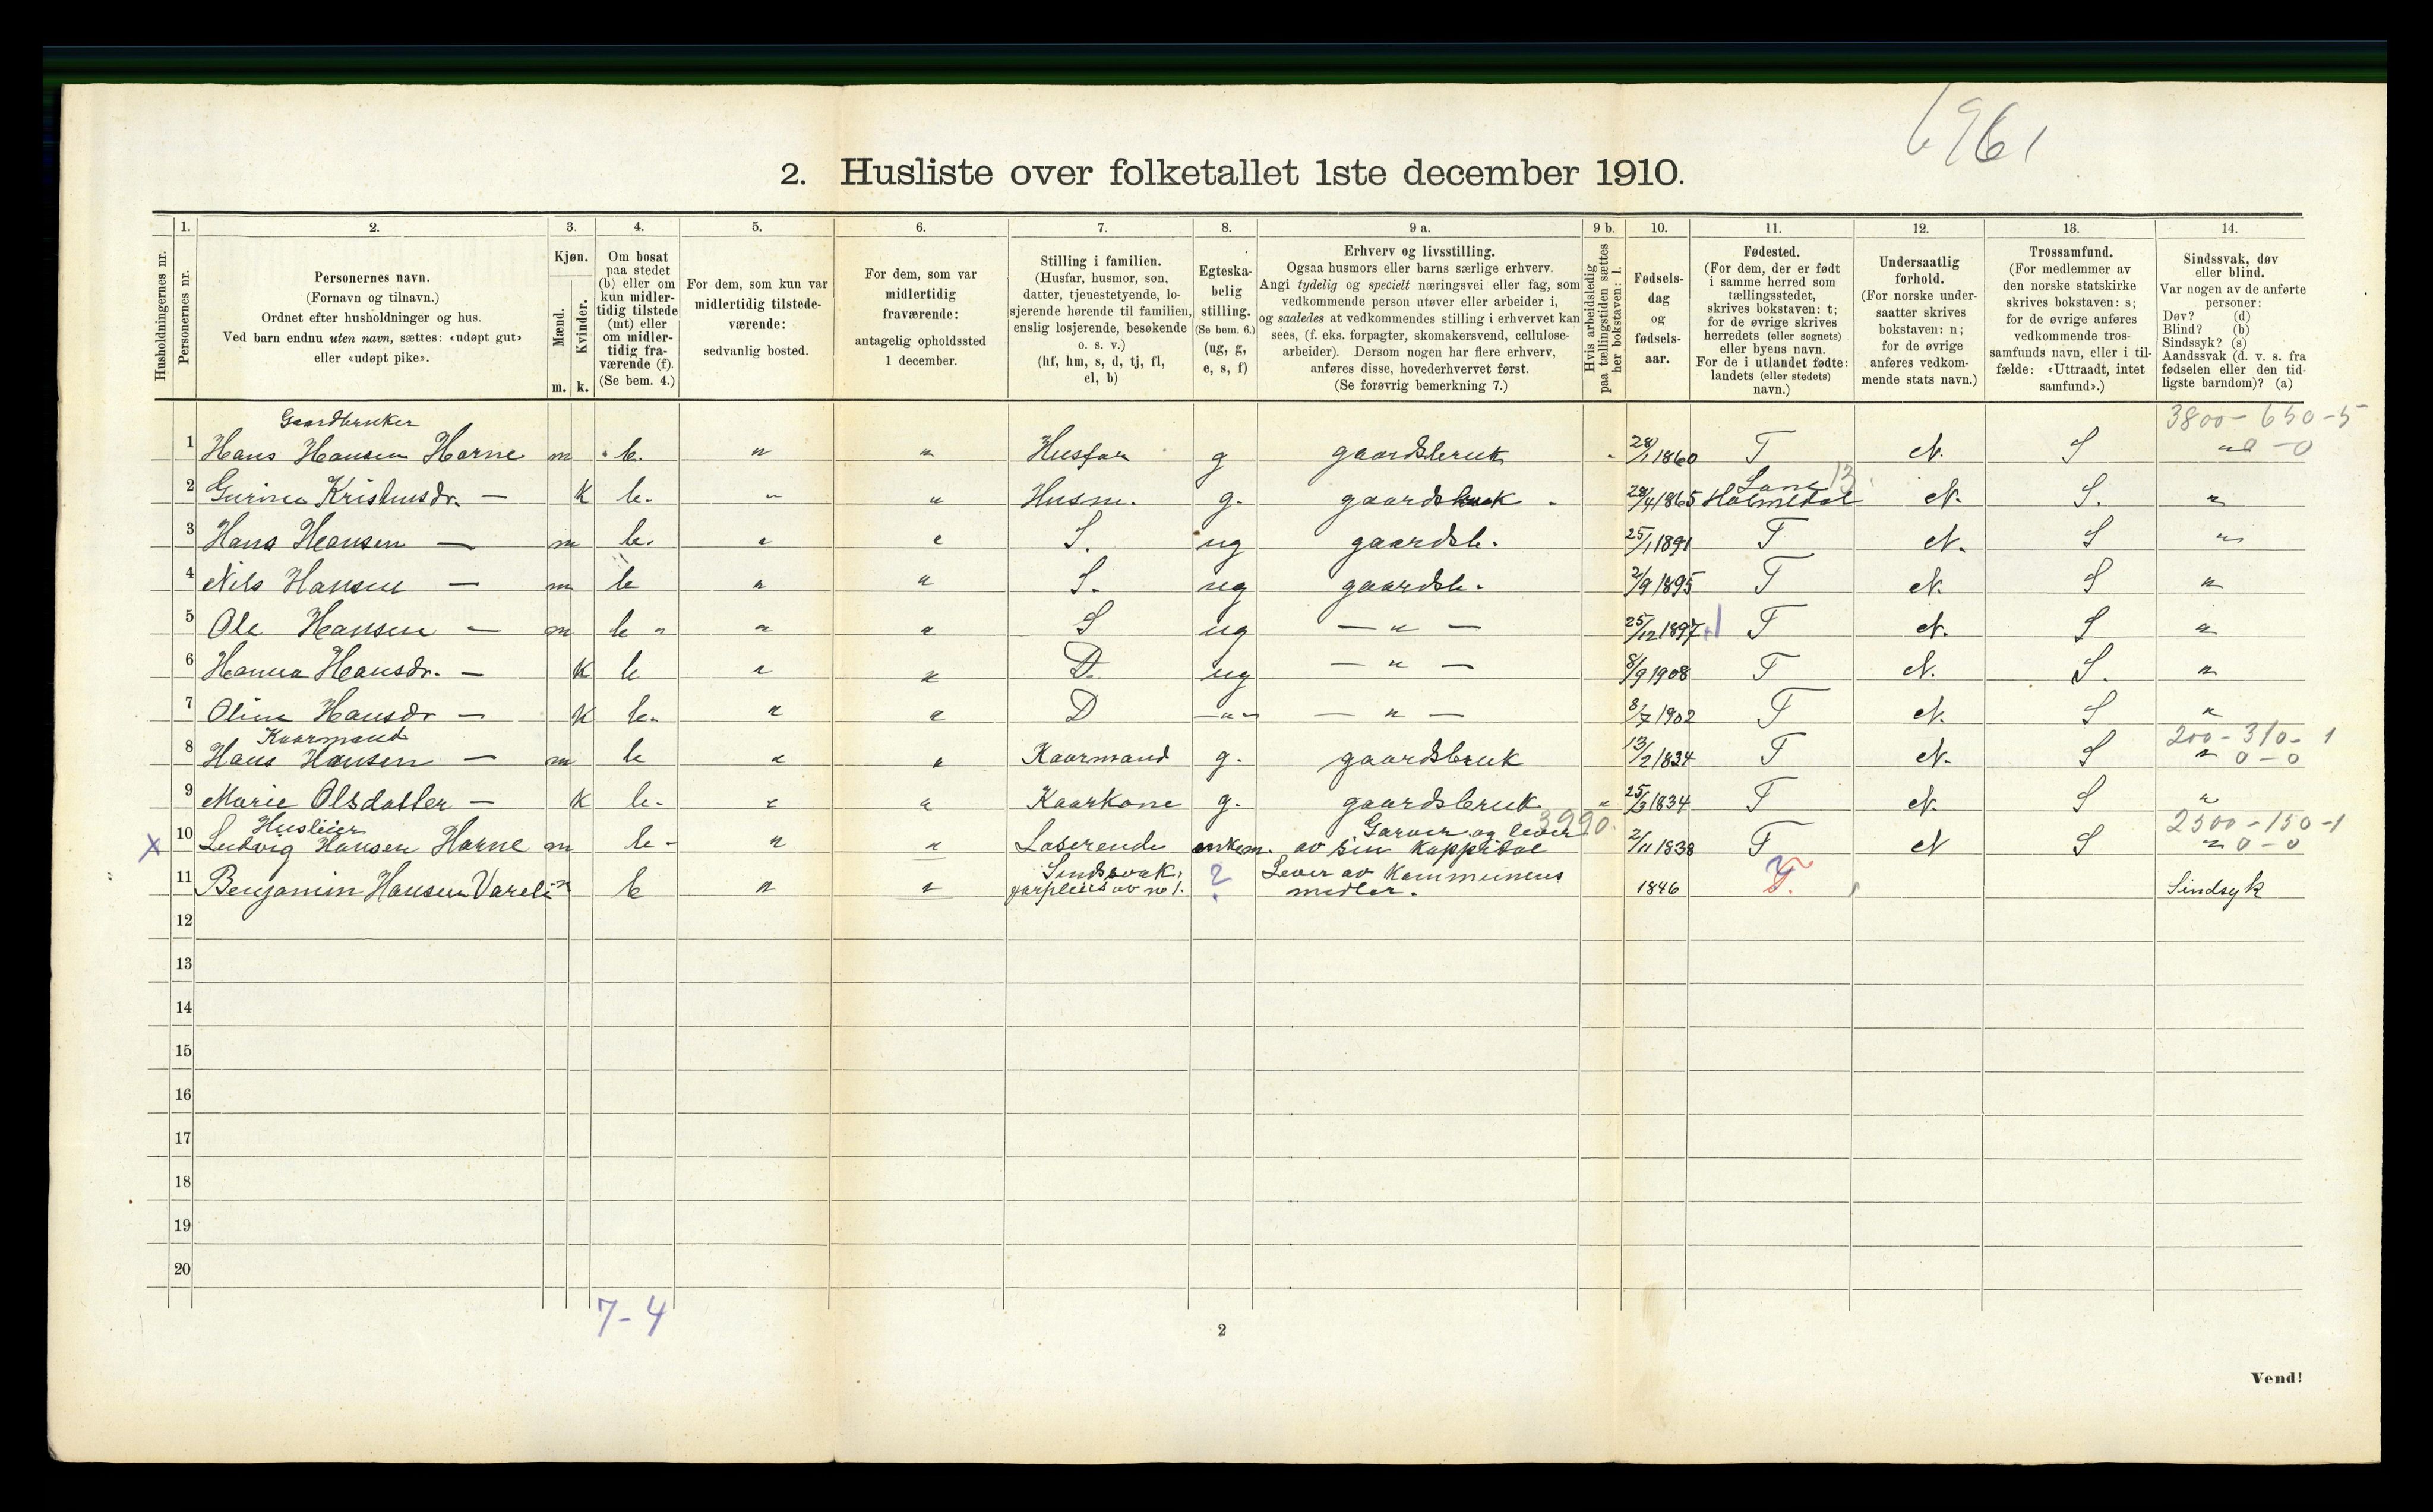 6961
2. Husliste over folketallet 1ste december 1910.
Husholdningernes nr.
1.
Personernes nr.
2.
Personernes navn.
(Fornavn og tilnavn.)
Ordnet efter husholdninger og hus.
Ved barn endnu uten navn, sættes: «udøpt gut»
eller «udøpt pike».
3.
Kjøn.
Mænd.
Kvinder.
m. k.
4.
Om bosat
paa stedet
(b) eller om
kun midler-
tidig tilstede
(mt) eller
om midler-
tidig fra-
værende (f).
(Se bem. 4.)
5.
For dem, som kun var
midlertidig tilstede-
værende:
sedvanlig bosted.
6.
For dem, som var
midlertidig
fraværende:
antagelig opholdssted
1 december.
7.
Stilling i familien.
(Husfar, husmor, søn,
datter, tjenestetyende, lo-
sjerende hørende til familien,
enslig losjerende, besøkende
o. s. v.)
(hf, hm, s, d, tj, fl,
el, b)
8.
Egteska-
belig
stilling.
(Se bem. 6.)
(ug, g,
e, s, f)
9 a.
Erhverv og livsstilling.
Ogsaa husmors eller barns særlige erhverv.
Angi tydelig og specielt næringsvei eller fag, som
vedkommende person utøver eller arbeider i,
og saaledes at vedkommendes stilling i erhvervet kan
sees, (f. eks. forpagter, skomakersvend, cellulose-
arbeider). Dersom nogen har flere erhverv,
anføres disse, hovederhvervet først.
(Se forøvrig bemerkning 7.)
9 b.
Hvis arbeidsledig
paa tællingstiden sættes
her bokstaven: l.
10.
Fødsels-
dag
og
fødsels-
aar.
11.
Fødested.
(For dem, der er født
i samme herred som
tællingsstedet,
skrives bokstaven: t;
for de øvrige skrives
herredets (eller sognets)
eller byens navn.
For de i utlandet fødte:
landets (eller stedets)
navn.)
12.
Undersaatlig
forhold.
(For norske under-
saatter skrives
bokstaven: n;
for de øvrige
anføres vedkom-
mende stats navn.)
13.
Trossamfund.
(For medlemmer av
den norske statskirke
skrives bokstaven: s;
for de øvrige anføres
vedkommende tros-
samfunds navn, eller i til-
fælde: «Uttraadt, intet
samfund».)
14.
Sindssvak, døv
eller blind.
Var nogen av de anførte
personer:
Døv? (d)
Blind? (b)
Sindssyk? (s)
Aandssvak (d. v. s. fra
fødselen eller den tid-
ligste barndom)? (a)
Gaardbruker 3800 - 650 - 5
1 Hans Hansen Horne m b. " " Husfar g gaardsbruk 28/1 1860 T N. S - 0
2 Gurine Kristensdr. — K b. " " Husm. g. gaardsbruk 28/4 1865 Holmedal 13 N. S. "
3 Hans Hansen — m b. " " S. ug gaardsb. 25/1 1891 T N. S "
4 Nils Hansen — m b " " S. ug gaardsb. 2/9 1895 T N. S "
5 Ole Hansen — m b " " " S ug — " — 25/12 1897 T N. S "
6 Hanna Hansdr. — K b " " D. ug — " — 8/9 1908 T N. S. "
7 Oline Hansdr — K b. " " D — " — — " — 8/7 1902 T N. S "
Kaarmand 200 - 310 - 1
8 Hans Hansen — m b " " Kaarmand g. gaardsbruk 13/2 1834 T N. S " 0 - 0
9 Marie Olsdatter — K b. " " Kaarkone g. gaardsbruk " 25/3 1834 T N. S "
Husleier Garver og lever 3990. 2500 - 150 - 1
X 10 Ludvig Hansen Horne m b - " " Loserende enkem. av sin Kappital 2/11 1838 T N S " 0 - 0
Sindsvak, Lever av Kommunens
11 Benjamin Hansen m b " " forpleies av no 1. ? medler. 1846 T. Sindsyk
12
13
14
15
16
17
18
19
20
7 - 4
2
Vend!